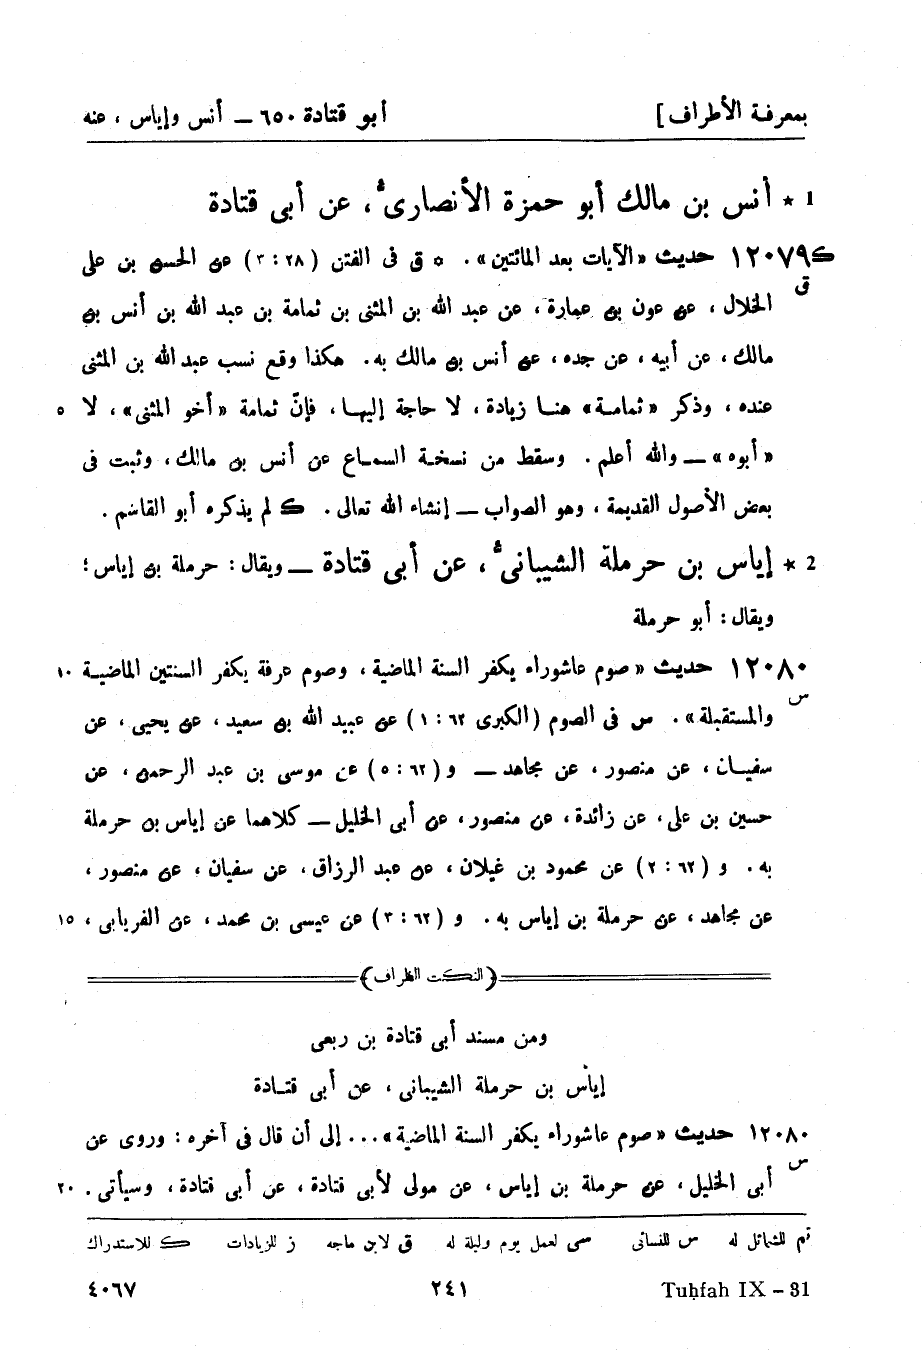 بمعرفة الأطراف] أبو قتادة ٦٥٠ ــ أنس وإياس ، عنه
1 * أنس بن مالك أبو حمزة الأنصارى، عن أبى قتادة
ك١٢٠٧٩ حديث «الآيات بعد المائتين». ٥ ق فى الفتن (٢٨ : ٣) عن الحسن بن على
ق
الخلال ، عن عون بن عمارة ، عن عبد الله بن المثنى بن ثمامة بن عبد الله بن أنس بن
مالك ، عن أبيه ، عن جده ، عن أنس بن مالك به. هكذا وقع نسب عبد الله بن المثنى
عنده ، وذكر «ثمامة» هنا زيادة، لا حاجة إليها ، فإنّ ثمامة «أخو المثنى»، لا ٥
«أبوه» ــ والله أعلم. وسقط من نسخة السماع عن أنس بن مالك، وثبت فى
بعض الأصول القديمة ، وهو الصواب ــ إنشاء الله تعالى. ك لم يذكره أبو القاسم .
2 * إياس بن حرملة الشيبانى ، عن أبى قتادة ــ ويقال : حرملة بن إياس ؛
ويقال : أبو حرملة
١٢٠٨٠ حديث «صوم عاشوراء يكفر السنة الماضية ، وصوم عرفة يكفر السنتين الماضية ١٠
س
والمستقبلة». س فى الصوم (الكبرى ٦٢ : ١) عن عبيد الله بن سعيد ، عن يحيى ، عن
سفيان ، عن منصور ، عن مجاهد ــ و (٦٢ : ٥) عن موسى بن عبد الرحمن ، عن
حسين بن على، عن زائدة، عن منصور ، عن أبى الخليل ــ كلاهما عن إياس بن حرملة
به. و (٦٢ : ٢) عن محمود بن غيلان ، عن عبد الرزاق، عن سفيان ، عن منصور ،
عن مجاهد ، عن حرملة بن إياس به. و (٦٢ : ٣) عن عيسى بن محمد ، عن الفريابى ، ١٥
(النكت الظراف)
ومن مسند أبى قتادة بن ربعى
إياس بن حرملة الشيبانى ، عن أبى قتادة
١٢٠٨٠ حديث «صوم عاشوراء يكفر السنة الماضية»... إلى أن قال فى آخره : وروى عن
س
أبى الخليل ، عن حرملة بن إياس ، عن مولى لأبى قتادة ، عن أبى قتادة ، وسيأتى . ٢٠
تم للشمائل له س للنسائى سى لعمل يوم وليلة له ق لابن ماجه ز للزيادات ك للاستدراك
Tuḥfah IX – 31 ٢٤١ ٤٠٦٧